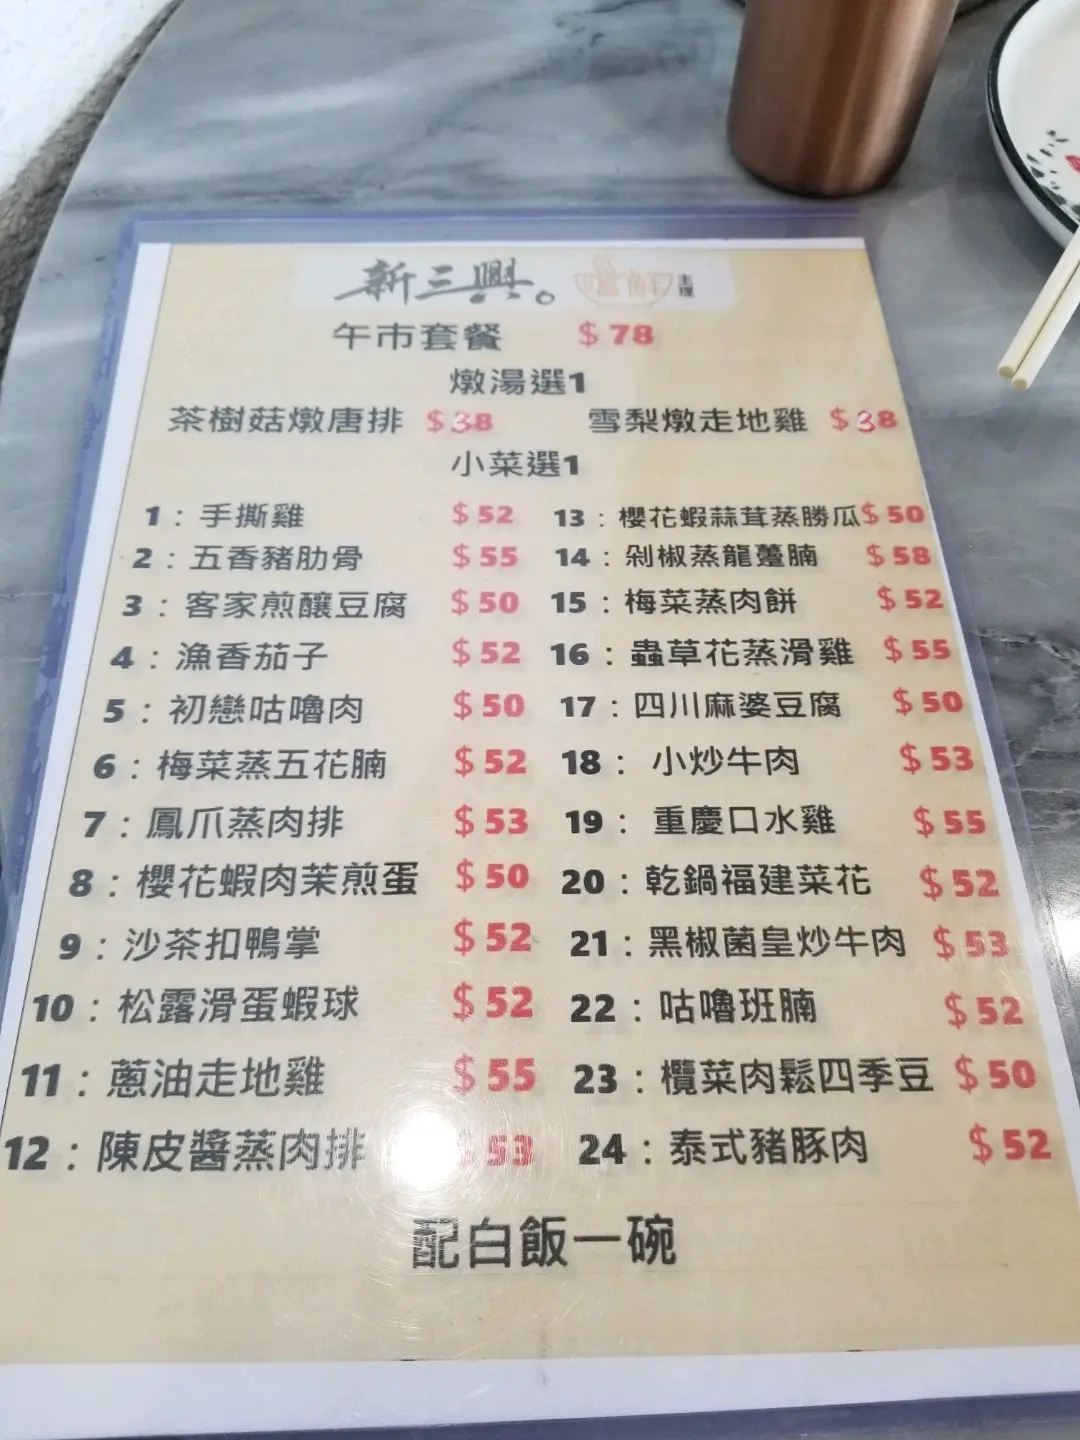 新三興。
主理
午市套餐 $78
燉湯選1
茶樹菇燉唐排 $38 雪梨燉走地雞 $38
小菜選1
1：手撕雞 $52
2：五香豬肋骨 $55
3：客家煎釀豆腐 $50
4：漁香茄子 $52
5：初戀咕嚕肉 $50
6：梅菜蒸五花腩 $52
7：鳳爪蒸肉排 $53
8：櫻花蝦肉茉煎蛋 $50
9：沙茶扣鴨掌 $52
10：松露滑蛋蝦球 $52
11：蔥油走地雞 $55
12：陳皮醬蒸肉排 $53
13：櫻花蝦蒜茸蒸勝瓜 $50
14：剁椒蒸龍躉腩 $58
15：梅菜蒸肉餅 $52
16：蟲草花蒸滑雞 $55
17：四川麻婆豆腐 $50
18：小炒牛肉 $53
19：重慶口水雞 $55
20：乾鍋福建菜花 $52
21：黑椒菌皇炒牛肉 $53
22：咕嚕班腩 $52
23：欖菜肉鬆四季豆 $50
24：泰式豬豚肉 $52
配白飯一碗